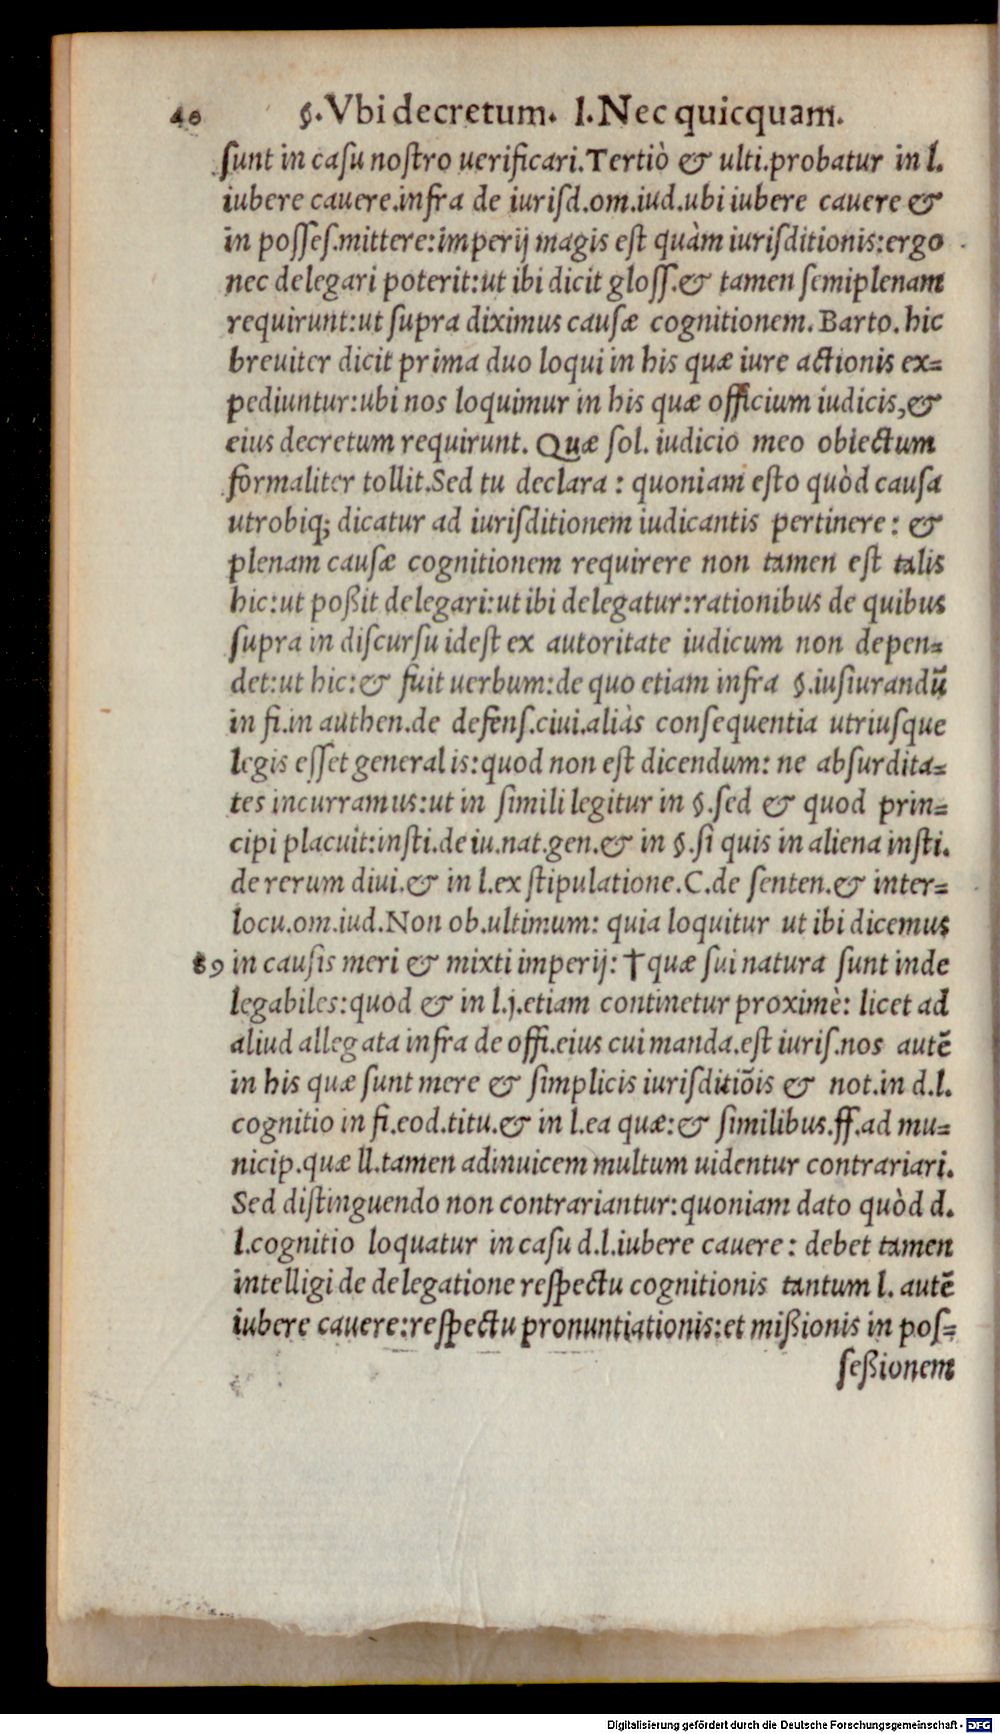 40 §.Vbi decretum. l.Nec quicquam.
sunt in casu nostro uerificari.Tertiò & ulti.probatur in l.
iubere cauere.infra de iurisd.om.iud.ubi iubere cauere &
in posses.mittere:imperij magis est quàm iurisditionis:ergo
nec delegari poterit:ut ibi dicit gloss.& tamen semiplenam
requirunt:ut supra diximus causæ cognitionem.Barto.hic
breuiter dicit prima duo loqui in his quæ iure actionis ex=
pediuntur:ubi nos loquimur in his quæ officium iudicis,&
eius decretum requirunt. Quæ sol. iudicio meo obiectum
formaliter tollit.Sed tu declara : quoniam esto quòd causa
utrobiq; dicatur ad iurisditionem iudicantis pertinere : &
plenam causæ cognitionem requirere non tamen est talis
hic:ut poßit delegari:ut ibi delegatur:rationibus de quibus
supra in discursu idest ex autoritate iudicum non depen=
det:ut hic:& fuit uerbum:de quo etiam infra §.iusiurandū
in fi.in authen.de defens.ciui.aliàs consequentia utriusque
legis esset generalis:quod non est dicendum: ne absurdita=
tes incurramus:ut in simili legitur in §.sed & quod prin=
cipi placuit:insti.de iu.nat.gen.& in §.si quis in aliena insti.
de rerum diui.& in l.ex stipulatione.C.de senten.& inter=
locu.om.iud.Non ob.ultimum: quia loquitur ut ibi dicemus
89 in causis meri & mixti imperij: † quæ sui natura sunt inde
legabiles:quod & in l.j.etiam continetur proximè: licet ad
aliud allegata infra de offi.eius cui manda.est iuris.nos autē
in his quæ sunt mere & simplicis iurisditiōis & not.in d.l.
cognitio in fi.eod.titu.& in l.ea quæ:& similibus.ff.ad mu=
nicip.quæ ll.tamen adinuicem multum uidentur contrariari.
Sed distinguendo non contrariantur:quoniam dato quòd d.
l.cognitio loquatur in casu d.l.iubere cauere : debet tamen
intelligi de delegatione respectu cognitionis tantum l. autē
iubere cauere:respectu pronuntiationis:et mißionis in pos=
seßionem
Digitalisierung gefördert durch die Deutsche Forschungsgemeinschaft - DFG